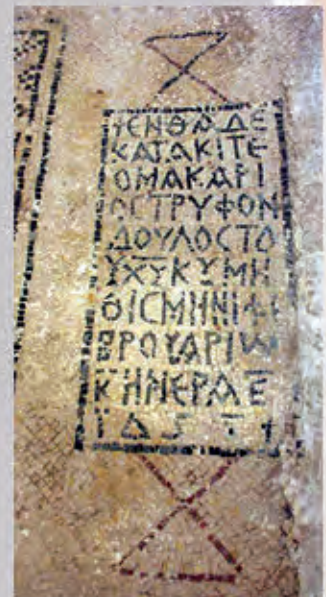 +ΕΝΘΑΔΕ
ΚΑΤΑΚΙΤΕ
ΟΜΑΚΑΡΙ
ΟϹΤΡΥΦΟΝ
ΔΟΥΛΟϹΤΟ
ΥΧΥΚΥΜΗ
ΘΙϹΜΗΝΙΦΕ
ΒΡΟΥΑΡΙⲰ
ΚΗΜΕΡΑΕ
ΙΔϚ